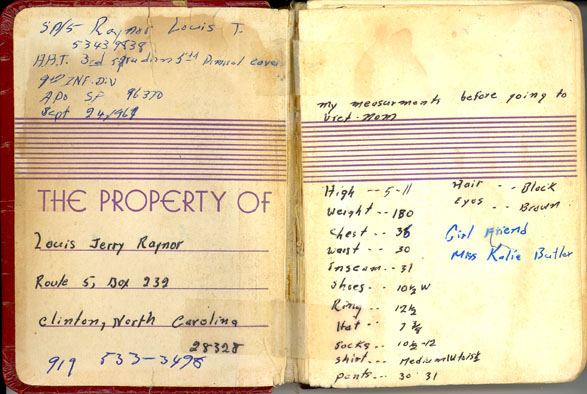 SP/5 Raynor Louis T.
53439838
H.H.T. 3rd sqradinn 5th Armical cover
9th INF. Div
APO SF 96370
Sept 24, 1969
THE PROPERTY OF
Louis Jerry Raynor
Route 5, Box 232
Clinton, North Carolina
28328
919 533-3498
my measurments before going to
Viet-Nam
High -- 5-11
Weight -- 180
Chest -- 36
Waist -- 30
Inseam -- 31
Shoes -- 10½ W
Ring -- 12½
Hat -- 7 ¾
Socks -- 10½-12
Shirt -- Medium
pants --- 30 31
Hair -- Black
Eyes -- Brown
Girl Friend
Miss Katie Butler